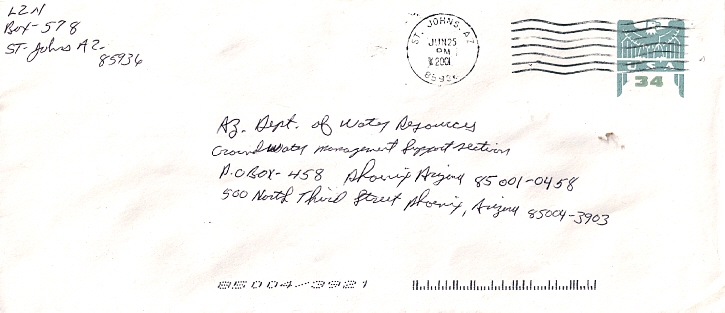 LZN
Box-578
St-Johns AZ-
85936
ST. JOHNS, AZ
JUN 25
PM
2001
85936
USA
34
Az. Dept. of Water Resources
Groundwater management Support section
P.O Box-458 Phoenix Arizona 85001-0458
500 North Third Street Phoenix, Arizona 85004-3903
85004-3921